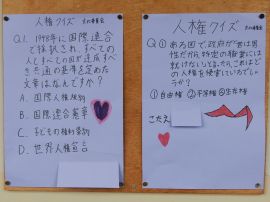 人権クイズ
Q1. 1948年に国際連合
で採択され、すべての
人とすべての国が達成すべ
き共通の基準を定めた
文章はなんですか?
A. 国際人権規約
B. 国際連合憲章
C. 子どもの権利条約
D. 世界人権宣言
人権クイズ
Q① ある国で、政府が「君は男
性だから特定の職業には
就けない」としたら、これはど
の人権を侵害しているでしょ
うか?
①自由権 ②平等権 ③生存権
こたえ